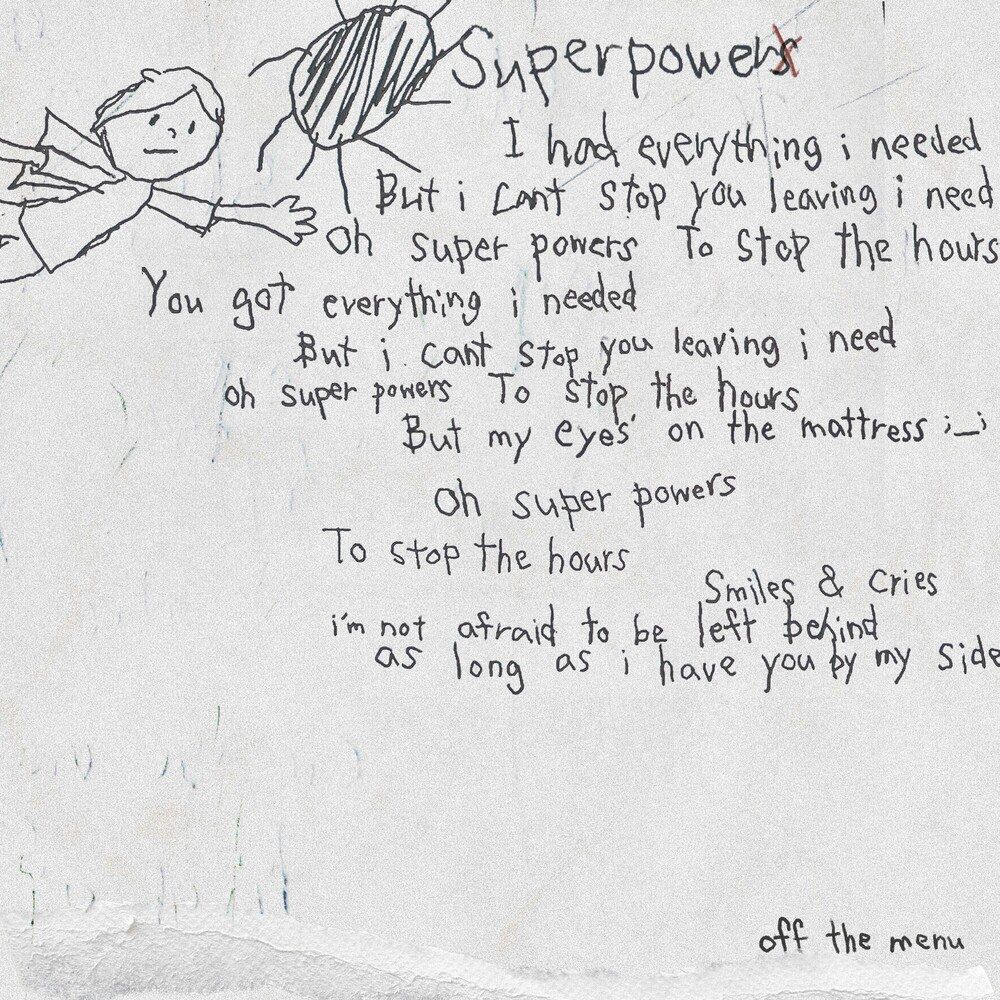 Superpowers
I had everything i needed
But i cant stop you leaving i need
oh super powers To stop the hours
You got everything i needed
But i cant stop you leaving i need
oh super powers To stop the hours
But my eyes on the mattress ;_;
oh super powers
To stop the hours
Smiles & cries
i'm not afraid to be left behind
as long as i have you by my side
off the menu